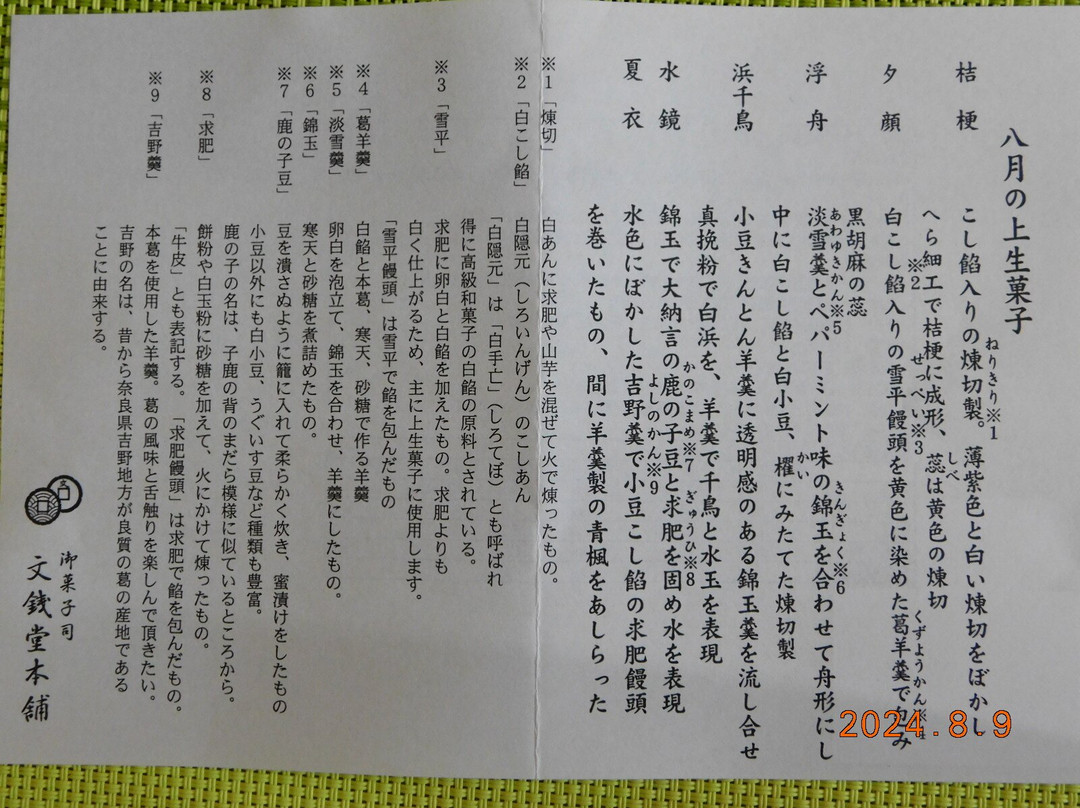 八月の上生菓子
桔梗
こし餡入りの煉切製。薄紫色と白い煉切をぼかし
ねりきり※1
へら細工で桔梗に成形、蕊は黄色の煉切
しべ
夕顔
白こし餡入りの雪平饅頭を黄色に染めた葛羊羹で包み
※2
せっぺい※3
くずようかん※4
黒胡麻の蕊
浮舟
淡雪羹とペパーミント味の錦玉を合わせて舟形にし
あわゆきかん※5
きんぎょく※6
中に白こし餡と白小豆、櫂にみたてた煉切製
かい
浜千鳥
小豆きんとん羊羹に透明感のある錦玉羹を流し合せ
真挽粉で白浜を、羊羹で千鳥と水玉を表現
水鏡
錦玉で大納言の鹿の子豆と求肥を固め水を表現
かのこまめ※7
ぎゅうひ※8
夏衣
水色にぼかした吉野羹で小豆こし餡の求肥饅頭
よしのかん※9
を巻いたもの、間に羊羹製の青楓をあしらった
※1「煉切」
白あんに求肥や山芋を混ぜて火で煉ったもの。
※2「白こし餡」
白隠元（しろいんげん）のこしあん
「白隠元」は「白手亡」（しろてぼ）とも呼ばれ
得に高級和菓子の白餡の原料とされている。
※3「雪平」
求肥に卵白と白餡を加えたもの。求肥よりも
白く仕上がるため、主に上生菓子に使用します。
「雪平饅頭」は雪平で餡を包んだもの
※4「葛羊羹」
白餡と本葛、寒天、砂糖で作る羊羹
※5「淡雪羹」
卵白を泡立て、錦玉を合わせ、羊羹にしたもの。
※6「錦玉」
寒天と砂糖を煮詰めたもの。
※7「鹿の子豆」
豆を潰さぬように籠に入れて柔らかく炊き、蜜漬けをしたもの
小豆以外にも白小豆、うぐいす豆など種類も豊富。
鹿の子の名は、子鹿の背のまだら模様に似ているところから。
※8「求肥」
餅粉や白玉粉に砂糖を加えて、火にかけて煉ったもの。
「牛皮」とも表記する。「求肥饅頭」は求肥で餡を包んだもの。
※9「吉野羹」
本葛を使用した羊羹。葛の風味と舌触りを楽しんで頂きたい。
吉野の名は、昔から奈良県吉野地方が良質の葛の産地である
ことに由来する。
御菓子司
文銭堂本舗
2024.8.9